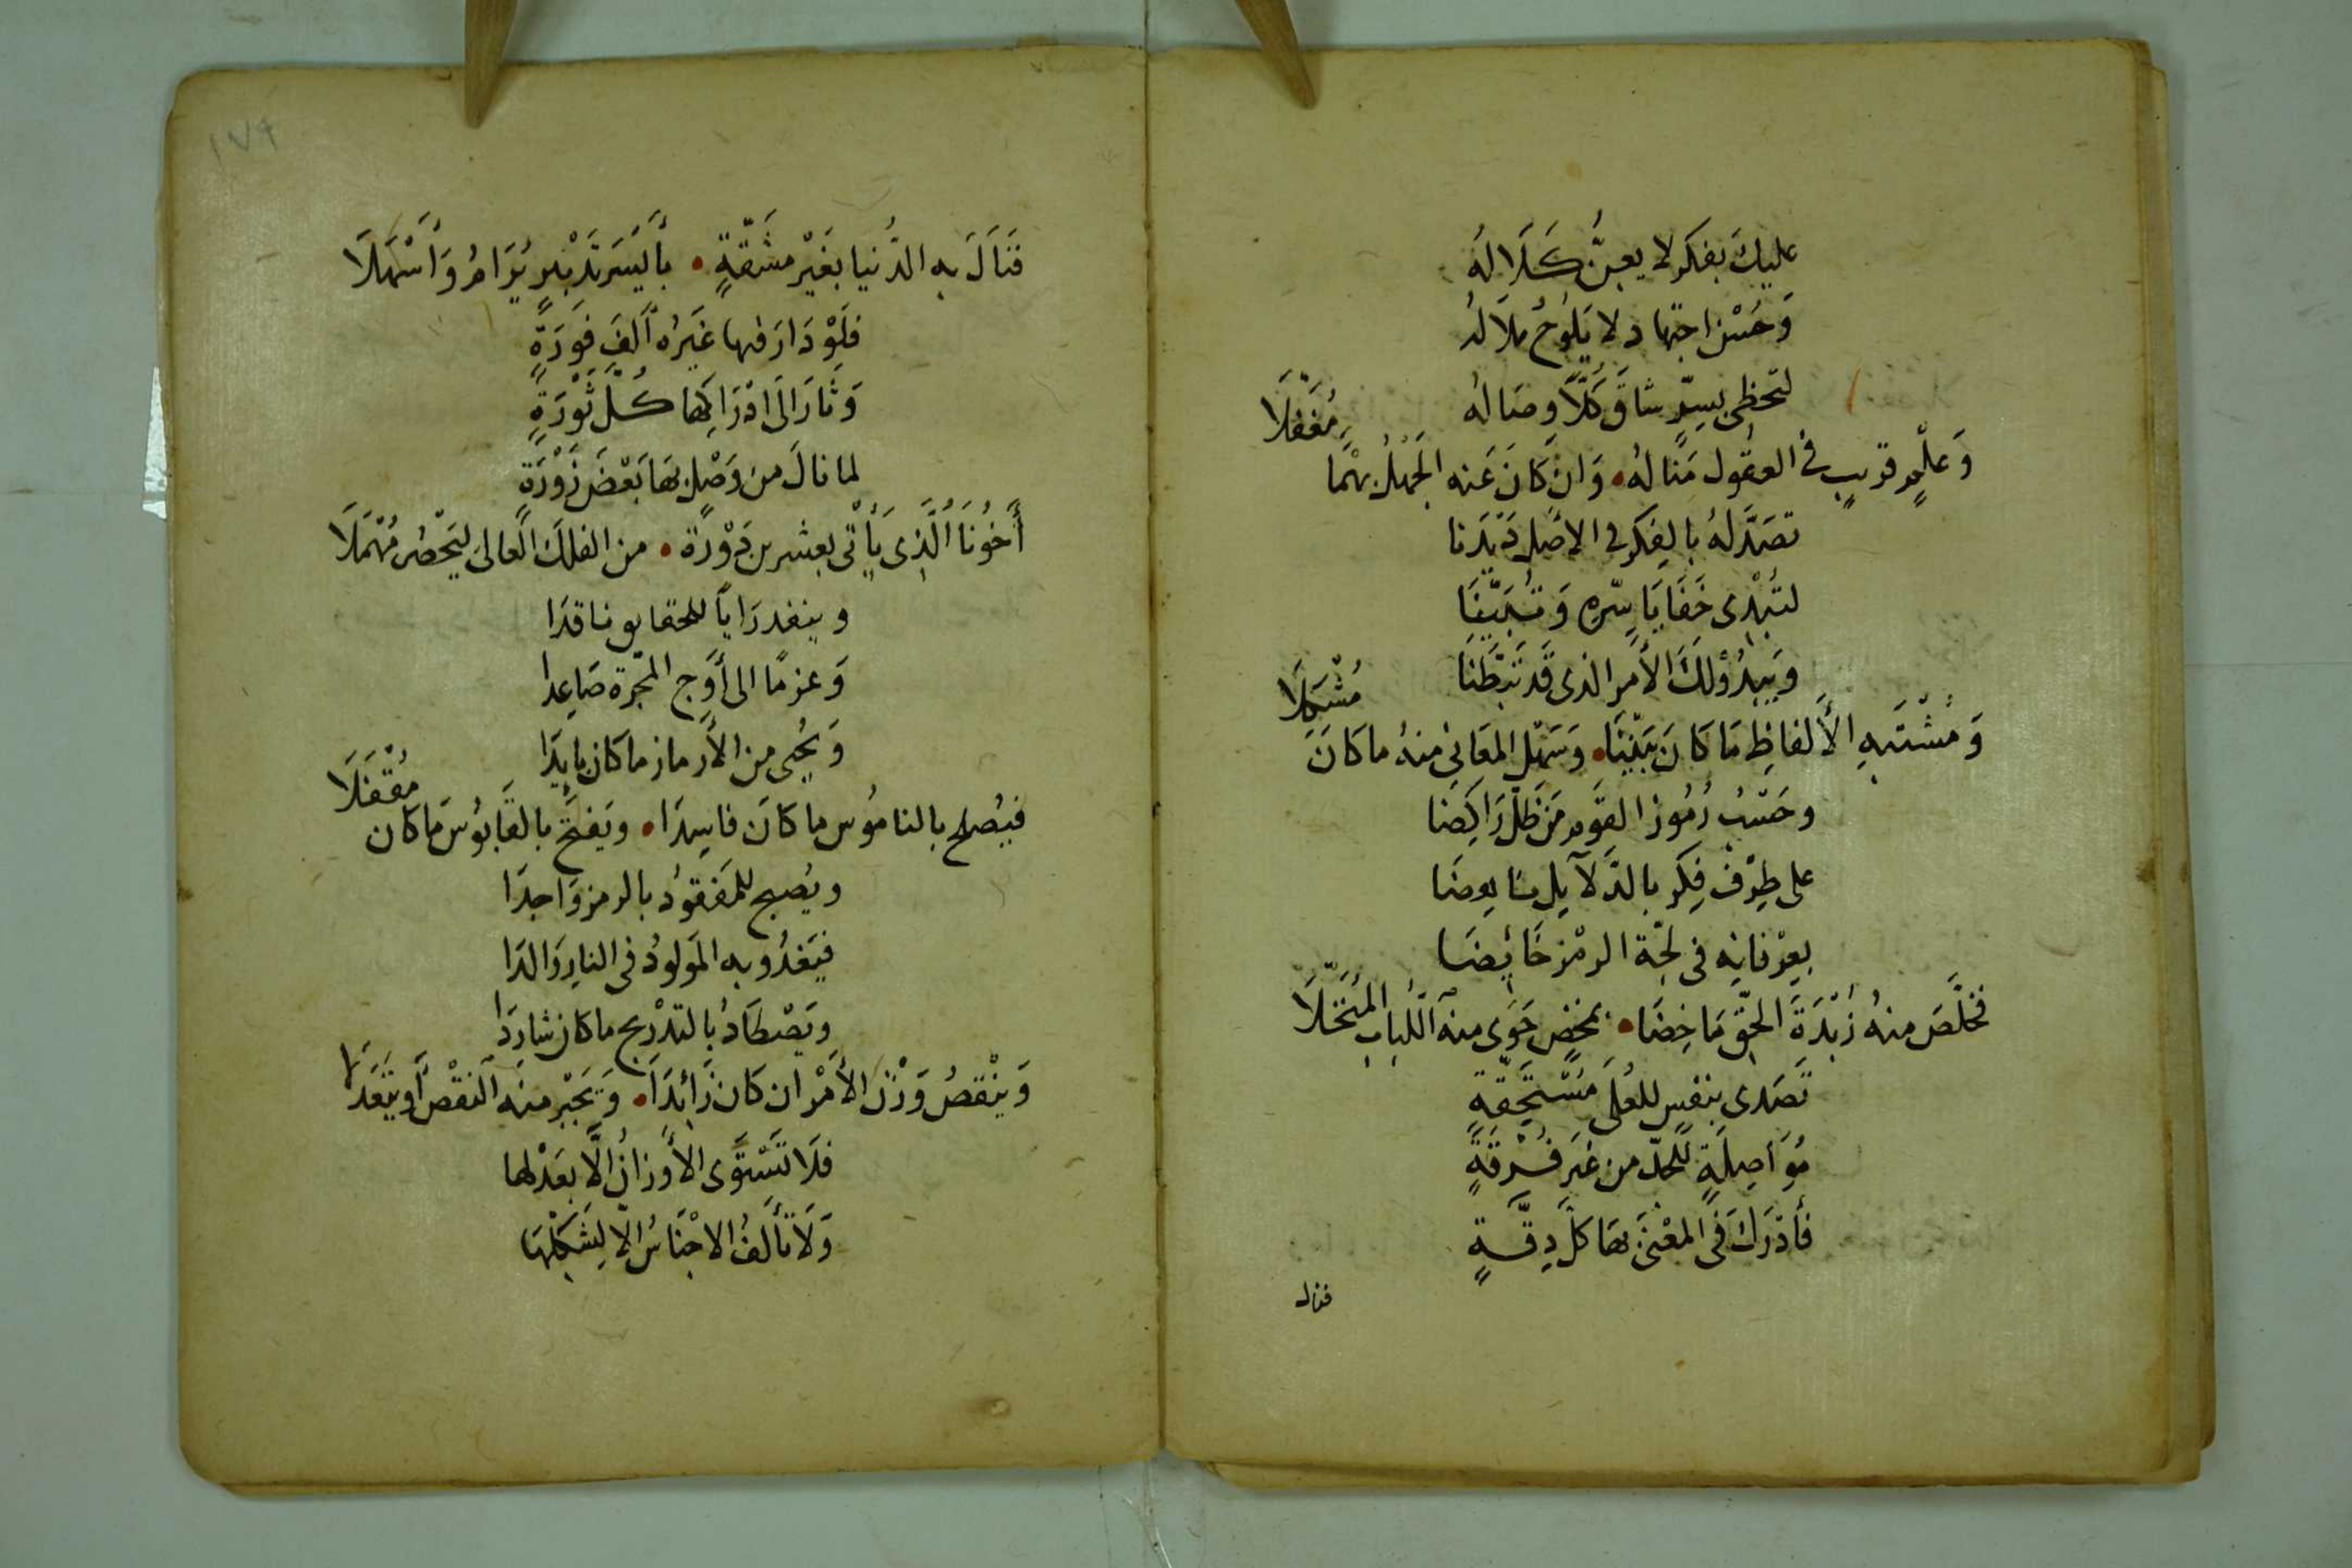 عليك بفكر لا يعنّ كَلَالُهُ
وَحُسْن اجتهاد لا يَلوُحُ مَلَالُه
لتحظى بسِرّ شاقَ كُلًّا وصَالُه
وَعلْمٍ قريبٍ في العقُول مَنالُهُ • وَان كَانَ عَنه الجَهْلُ بهْما مُغَفَّلَا
تصَدَّ لهُ بالفِكر في الأصْل دَيْدَنا
لتُبْدى خَفَايَا سِرّه وَتُبَيِّنَا
وَيَبدُو لَكَ الأَمر الذى قَد تَبَطَّنَا
وَمُشْتَبهِ الأَلفاظِ مَا كَانَ بَيِّنَا • وَسَهْل المعَانى منهُ ما كَانَ مُشْكِلَا
وحَسْبُ رُمُوز القَوم مَن ظَلّ رَاكِضَا
على طِرْف فِكر بالدَّلآيل
بعِرْفانِه فى لجّة الرمْز خَائِضَا
فخلَّصَ منهُ زُبْدَةَ الحقّ مَاخِضَا • بمخضٍ حَوَى منه اللّباب المُنَخَّلَا
تَصَدى بنفسٍ للعُلى مُسْتَحِقّةٍ
مُوَاصِلَةٍ للجدّ من غَير فُرْقَةٍ
فأدْرَكَ فى المعْنىَ بها كلّ دِقّةٍ
فنال
١٧٩
فَنَالَ به الدُّنيا بغَيْر مشَقّةٍ • بأَيسَر تَدْبيرٍ يُرَامُ وَأَسْهَلَا
فلَوْ دَارَ فيها غَيرُه أَلفَ فَورَةٍ
وَثارَ الَى ادْرَاكِها كُلَّ ثَوْرَةٍ
لما نالَ من وَصْلٍ بهَا بَعْضَ زَوْرَةٍ
أَخُونَا الَّذِى يَأْتى بعشرين دَوْرَة • من الفلك العَالىَ ليَحْصُر مُهْمَلَا
وينفد رَاياً للحقايق ناقدَا
وَعزمًا الى أَوَج المجَرة صَاعِدا
وَيُحيى من الأَرماز ما كان بايِدَا
فيُصلح بالنامُوس ما كَانَ فاسِدَا • ويَفتَح بالقَابوُسَ مَا كان مُقْفَلَا
ويُصبح للمَفقوُد بالرمز وَاجدَا
فيَغدُو به المَولوُدُ فى النارِ وَالدَا
ويَصْطَادُ بالتدْريج ما كان شارِدَا
وَينْقصُ وَزْنَ الأَمْر ان كَان زَائِدَا • وَيَجْبر منه النقْصَ أَو
فلَا تَسْتَوى الأَوزانُ إلَّا بعَدْلها
وَلَا تَألفُ الاجْنَاسُ إلا لِشَكْلِهَا